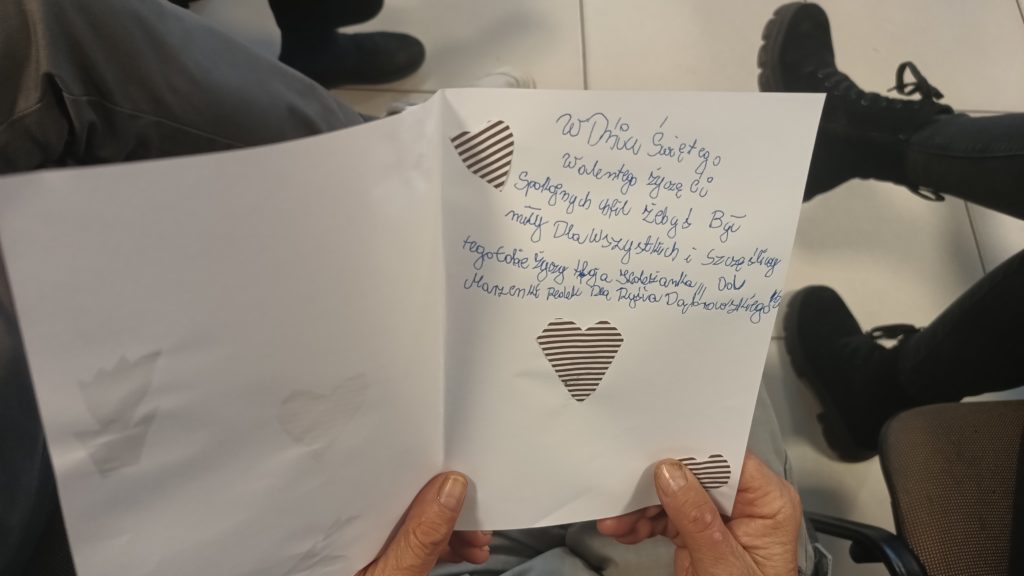 W Dniu Świętego
Walentego życzę Ci
Spokojnych chfil żebyś Był
miły Dla Wszystkich i Szczęśliwy
tego tobie życzy twoja Od
Marzenki Dla Rysia Dąbrowskiego